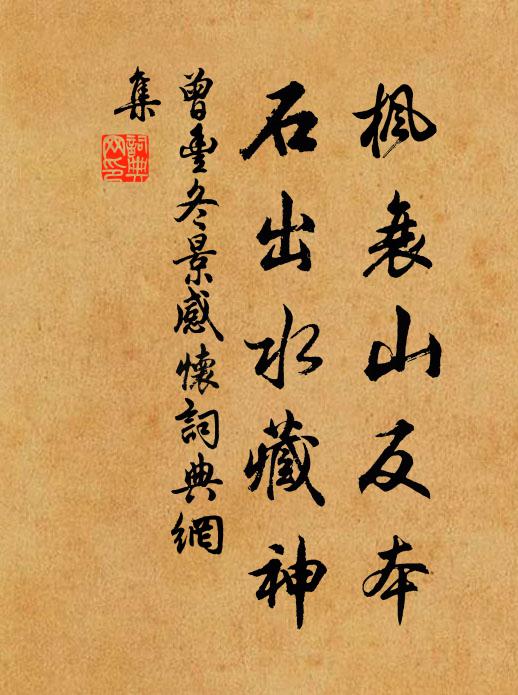 枫衰山反本
石出水藏神
曾豐冬景感懷詞典網
集
詞典
网印